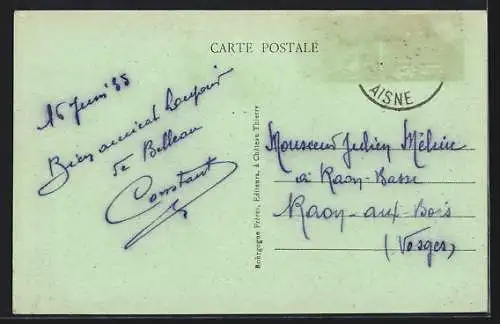 CARTE POSTALE
AISNE
15 Juin 35
Bien amical bonjour
de Belleau
Constant
Bourgogne Frères, Editeurs, à Château Thierry
Monsieur Julien Méline
à Raon-Basse
Raon-aux-Bois
(Vosges)